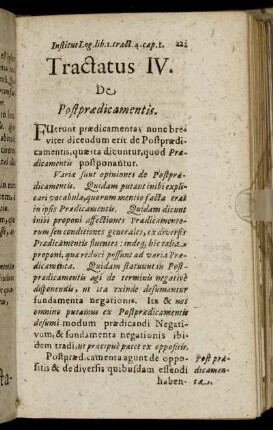 Institut Log. lib. 1. tract. 4. cap. 1.
Tractatus IV.
De
Postprædicamentis.
FUerunt prædicamenta; nunc bre-
viter dicendum erit de Postprædi-
camentis, quæ ita dicuntur, quod Præ-
dicamentis postponantur.
Variæ sunt opiniones de Postpræ-
dicamentis. Quidam putant inibi expli-
cari vocabula, quorum mentio facta erat
in ipsis Prædicamentis. Quidam dicunt
inibi proponi affectiones Prædicamento-
rum seu conditiones generales, ex diversis
Prædicamentis fluentes: indeq; hic talia
proponi, quæ reduci possunt ad varia Præ-
dicamenta. Quidam statuunt in Post-
prædicamentis agi de terminis negativè
disponendis, ut ita exinde desumantur
fundamenta negationis. Ita & nos
omnino putamus ex Postprædicamentis
desumi modum prædicandi Negati-
vum, & fundamenta negationis ibi-
dem tradi, ut præcipuè patet ex oppositis.
Postprædicamenta agunt de oppo-
sitis & de diversis quibusdam essendi
haben-
Postpræ-
dicamen-